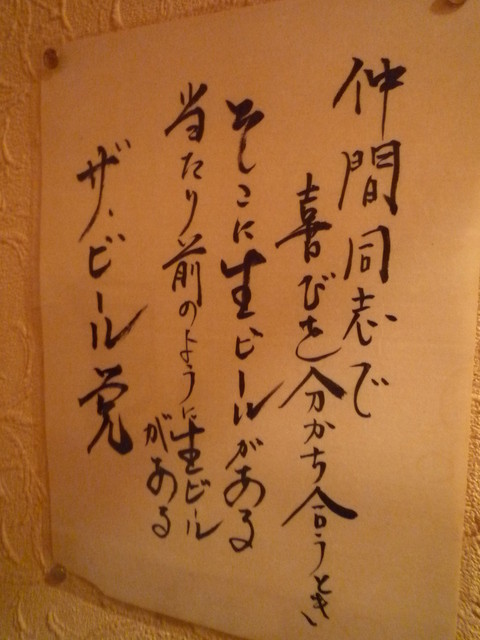 仲間同志で
喜びを分かち合うとき
そこに生ビールがある
当たり前のように生ビール
がある
ザ・ビール党